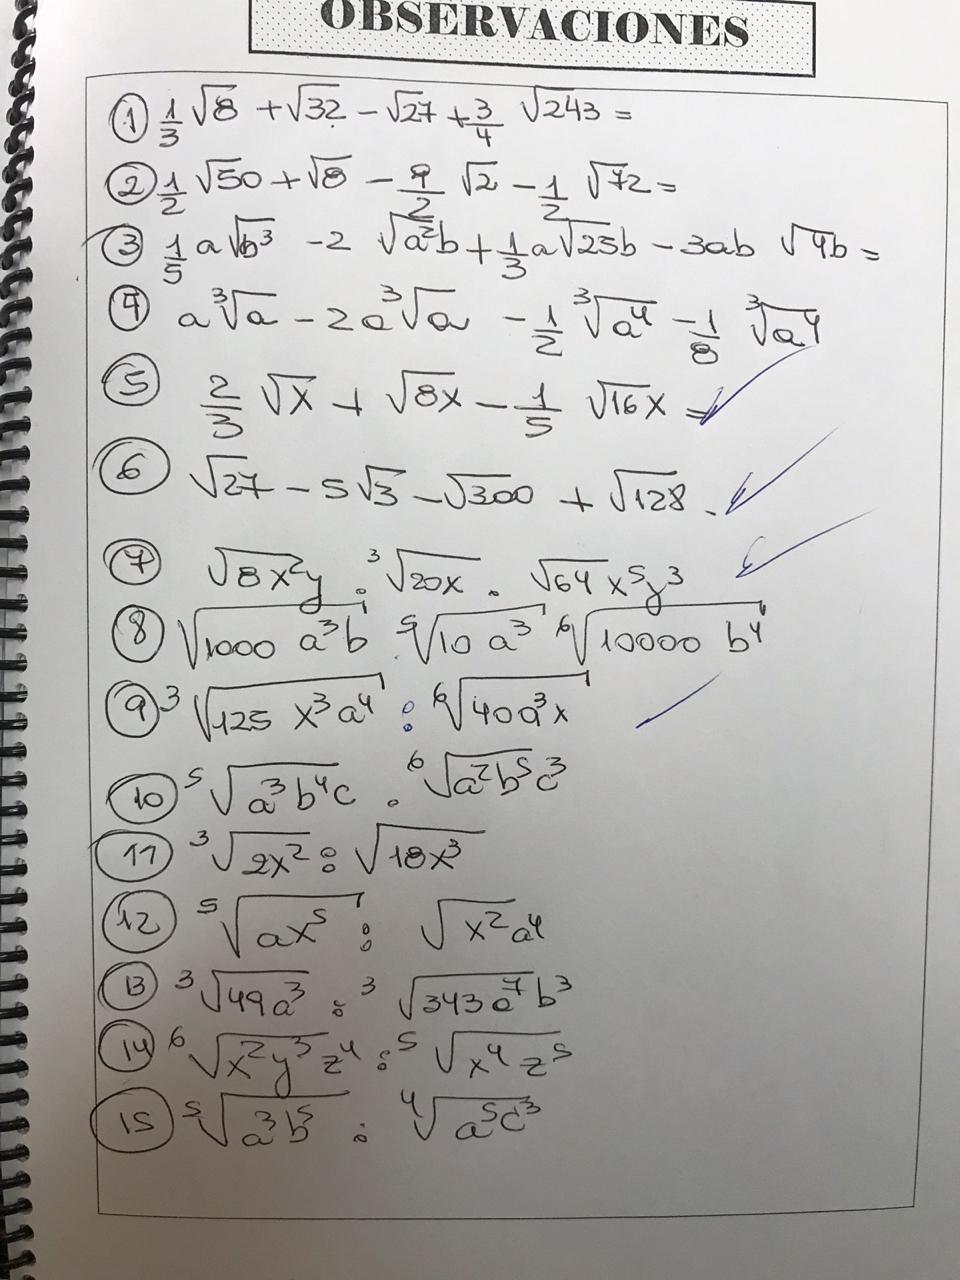 OBSERVACIONES
① 1/3 √8 + √32 - √27 + 3/4 √243 =
② 1/2 √50 + √8 - 9/2 √2 - 1/2 √72 =
③ 1/5 a√b³ - 2 √a²b + 1/3 a√25b - 3ab √4b =
④ a ³√a - 2a ³√a - 1/2 ³√a⁴ - 1/8 ³√a⁴
⑤ 2/3 √x + √8x - 1/5 √16x =
⑥ √27 - 5√3 - √300 + √128 .
⑦ √8x²y : ³√20x . √64x⁵y³
⑧ √1000 a³b . ⁵√10 a³ ⁶√10000 b⁴
⑨ ³√125 x³a⁴ : ⁶√40a³x
⑩ ⁵√a³b⁴c . ⁶√a²b⁵c³
⑪ ³√2x² : √18x³
⑫ ⁵√ax⁵ : √x²a⁴
⑬ ³√49a³ : ³√343a⁷b³
⑭ ⁶√x²y³z⁴ : ⁵√x⁴z⁵
⑮ ⁵√a³b⁵ : ⁴√a⁵c³